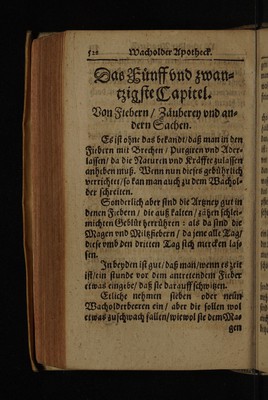 520 Wacholder Apotheck.
Das Fünff vnd zwan-
tzigste Capitel.
Von Fiebern / Zäuberey vnd an-
dern Sachen.
Es ist ohne das bekandt / daß man in den
Fiebern mit Brechen / Purgiren vnd Ader-
lassen / da die Naturen vnd Kräffte zulassen
anheben muß. Wenn nun dieses gebührlich
verrichtet / so kan man auch zu dem Wachol-
der schreiten.
Sonderlich aber sind die Artzney gut in
denen Fiebern / die auß kalten / zähen schlei-
michten Geblüt herrühren: als da sind die
Magen vnd Miltzfiebern / da jene alle Tag /
diese vmb den dritten Tag sich mercken las-
sen.
In beyden ist gut / daß man / wenn es zeit
ist / ein stunde vor dem antretenden Fieber
etwas eingebe / daß sie darauff schwitzen.
Etliche nehmen sieben oder neun
Wacholderbeeren ein / aber die sollen wol
etwas zuschwach fallen / wiewol sie dem Ma-
gen